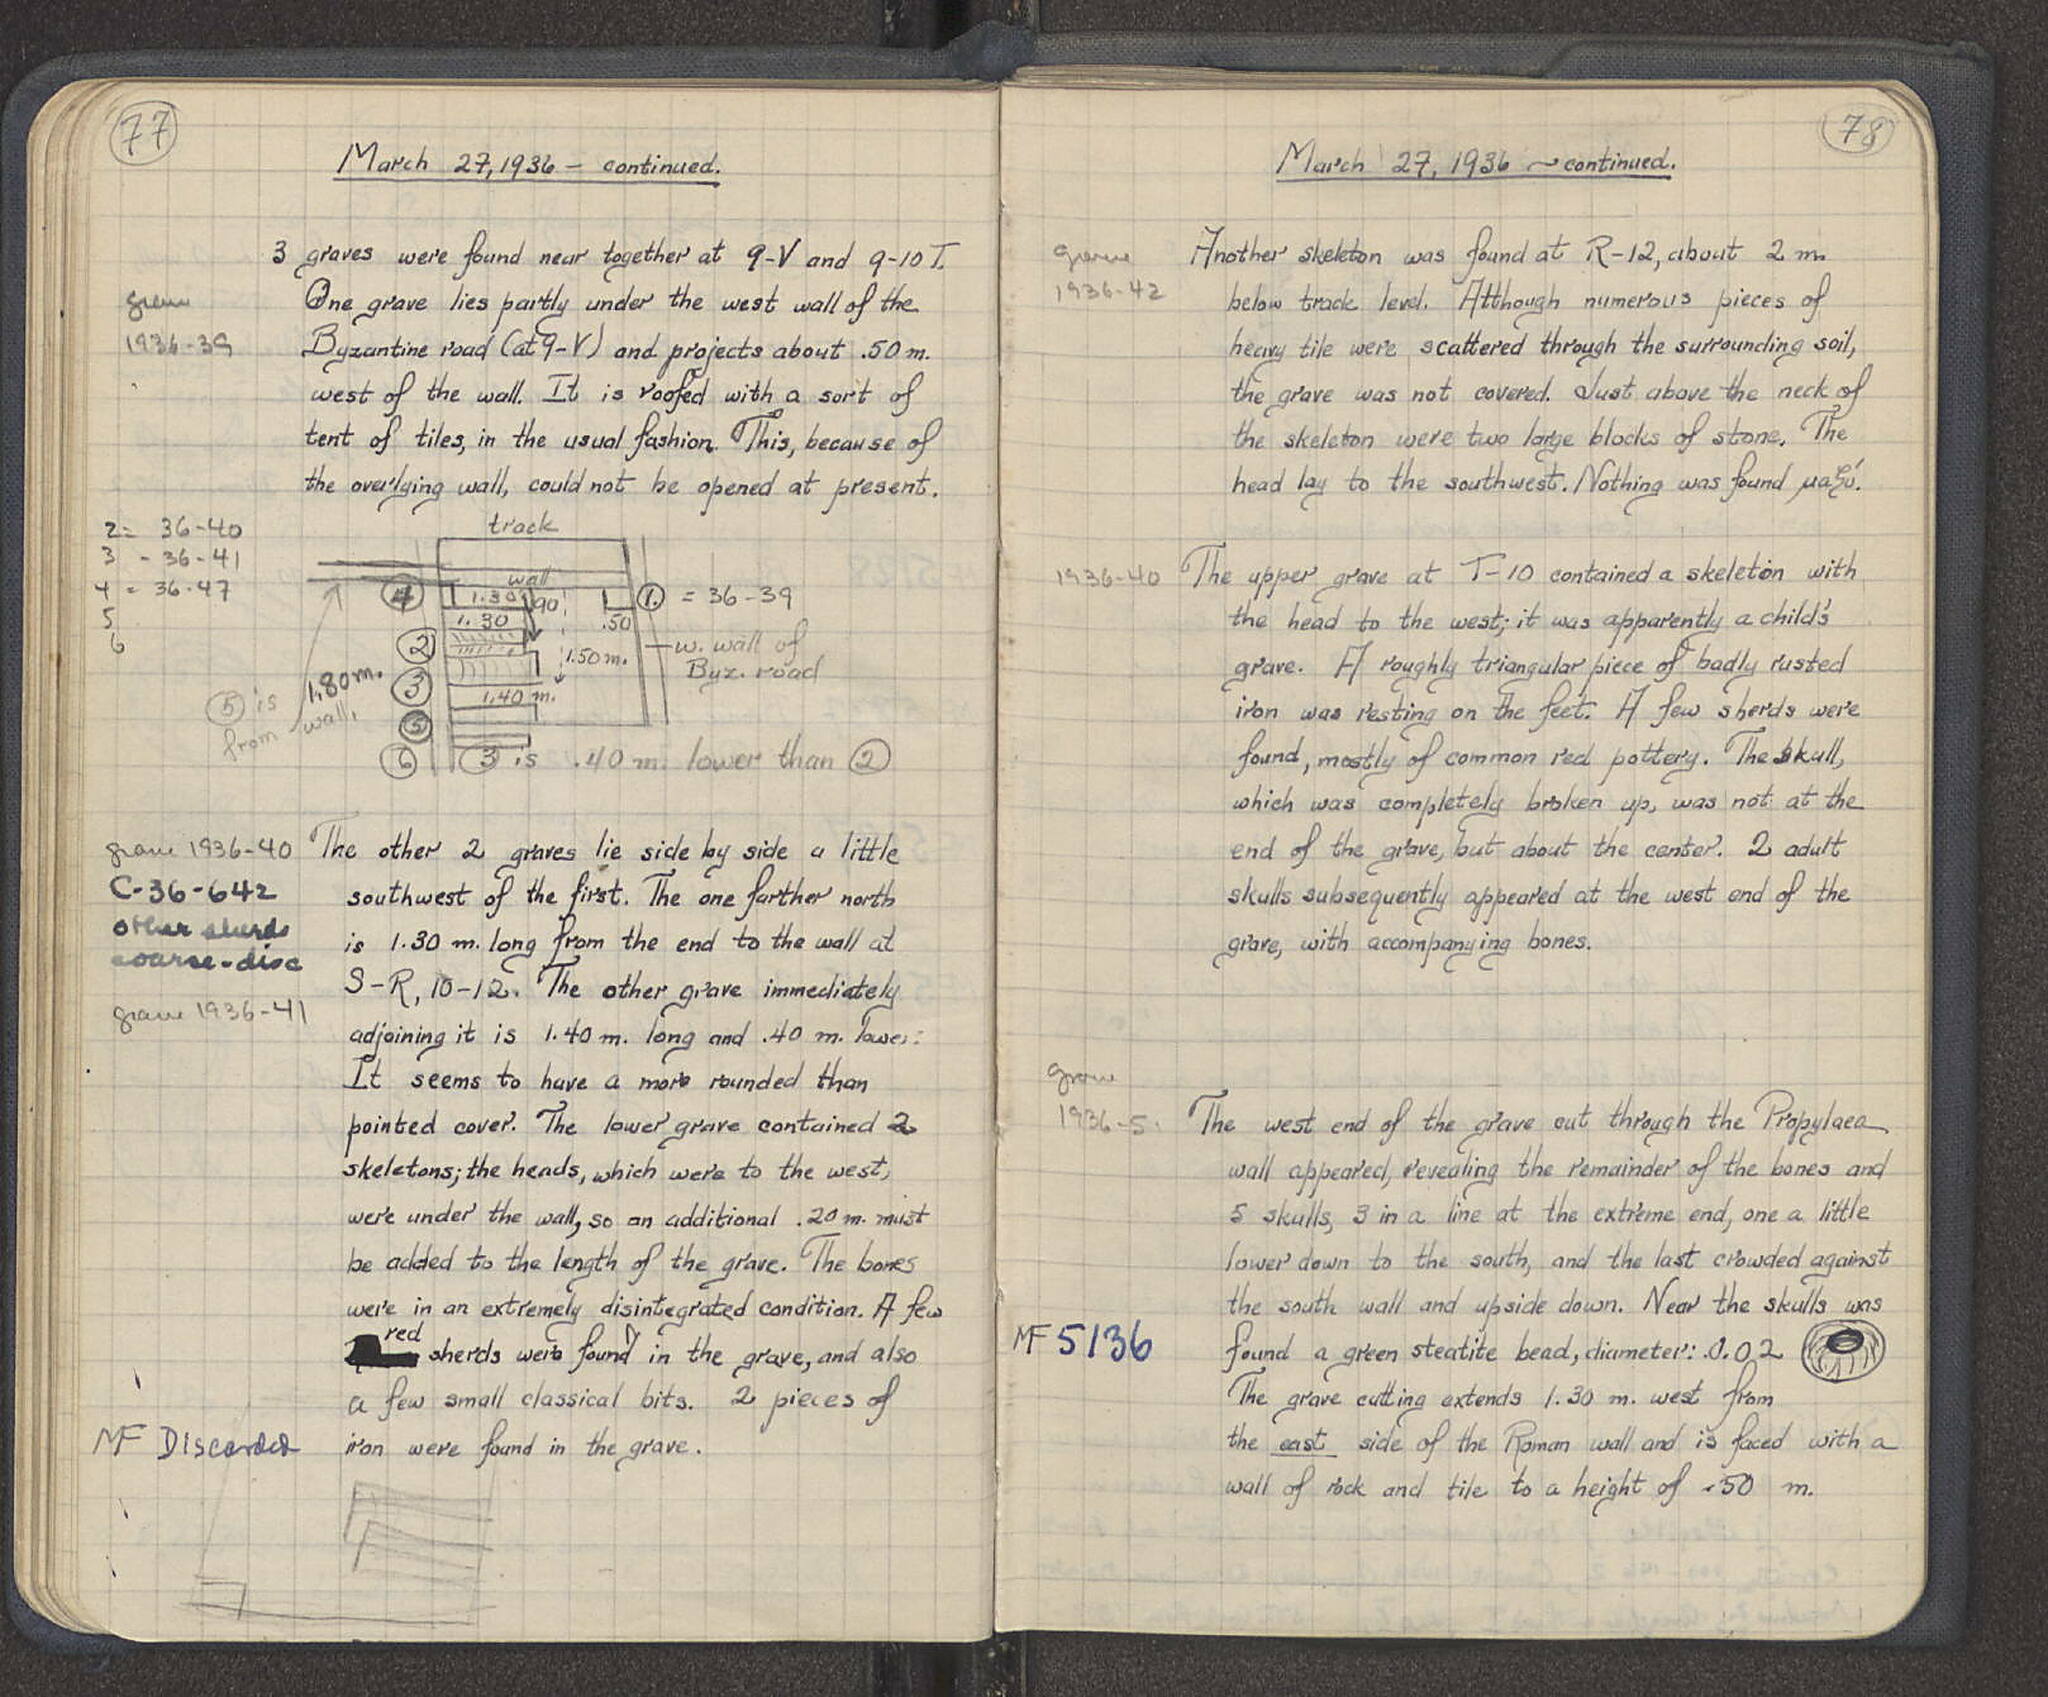 77
March 27, 1936 – continued.
3 graves were found near together at 9-V and 9-10 T.
grave
1936-39
One grave lies partly under the west wall of the
Byzantine road (at 9-V) and projects about .50 m.
west of the wall. It is roofed with a sort of
tent of tiles, in the usual fashion. This, because of
the overlying wall, could not be opened at present.
2 = 36-40
3 - 36-41
4 = 36-47
5
6
track
wall
4
1.30
.90
1. = 36-39
1.30
.50
2
1.50 m.
w. wall of
Byz. road
3
1.40 m.
5
6
5 is 1.80 m.
from wall.
3 is .40 m. lower than 2
grave 1936-40
C-36-642
other sherds
coarse-disc
grave 1936-41
The other 2 graves lie side by side a little
southwest of the first. The one farther north
is 1.30 m. long from the end to the wall at
S-R, 10-12. The other grave immediately
adjoining it is 1.40 m. long and .40 m. lower.
It seems to have a more rounded than
pointed cover. The lower grave contained 2
skeletons; the heads, which were to the west,
were under the wall, so an additional .20 m. must
be added to the length of the grave. The bones
were in an extremely disintegrated condition. A few
red sherds were found in the grave, and also
a few small classical bits. 2 pieces of
MF Discarded
iron were found in the grave.
78
March 27, 1936 – continued.
grave
1936-42
Another skeleton was found at R-12, about 2 m.
below track level. Although numerous pieces of
heavy tile were scattered through the surrounding soil,
the grave was not covered. Just above the neck of
the skeleton were two large blocks of stone. The
head lay to the southwest. Nothing was found μαζύ.
1936-40
The upper grave at T-10 contained a skeleton with
the head to the west; it was apparently a child's
grave. A roughly triangular piece of badly rusted
iron was resting on the feet. A few sherds were
found, mostly of common red pottery. The skull,
which was completely broken up, was not at the
end of the grave, but about the center. 2 adult
skulls subsequently appeared at the west end of the
grave, with accompanying bones.
grave
1936-5.
The west end of the grave cut through the Propylaea
wall appeared, revealing the remainder of the bones and
5 skulls, 3 in a line at the extreme end, one a little
lower down to the south, and the last crowded against
the south wall and upside down. Near the skulls was
MF 5136
found a green steatite bead, diameter: 0.02
The grave cutting extends 1.30 m. west from
the east side of the Roman wall and is faced with a
wall of rock and tile to a height of .50 m.